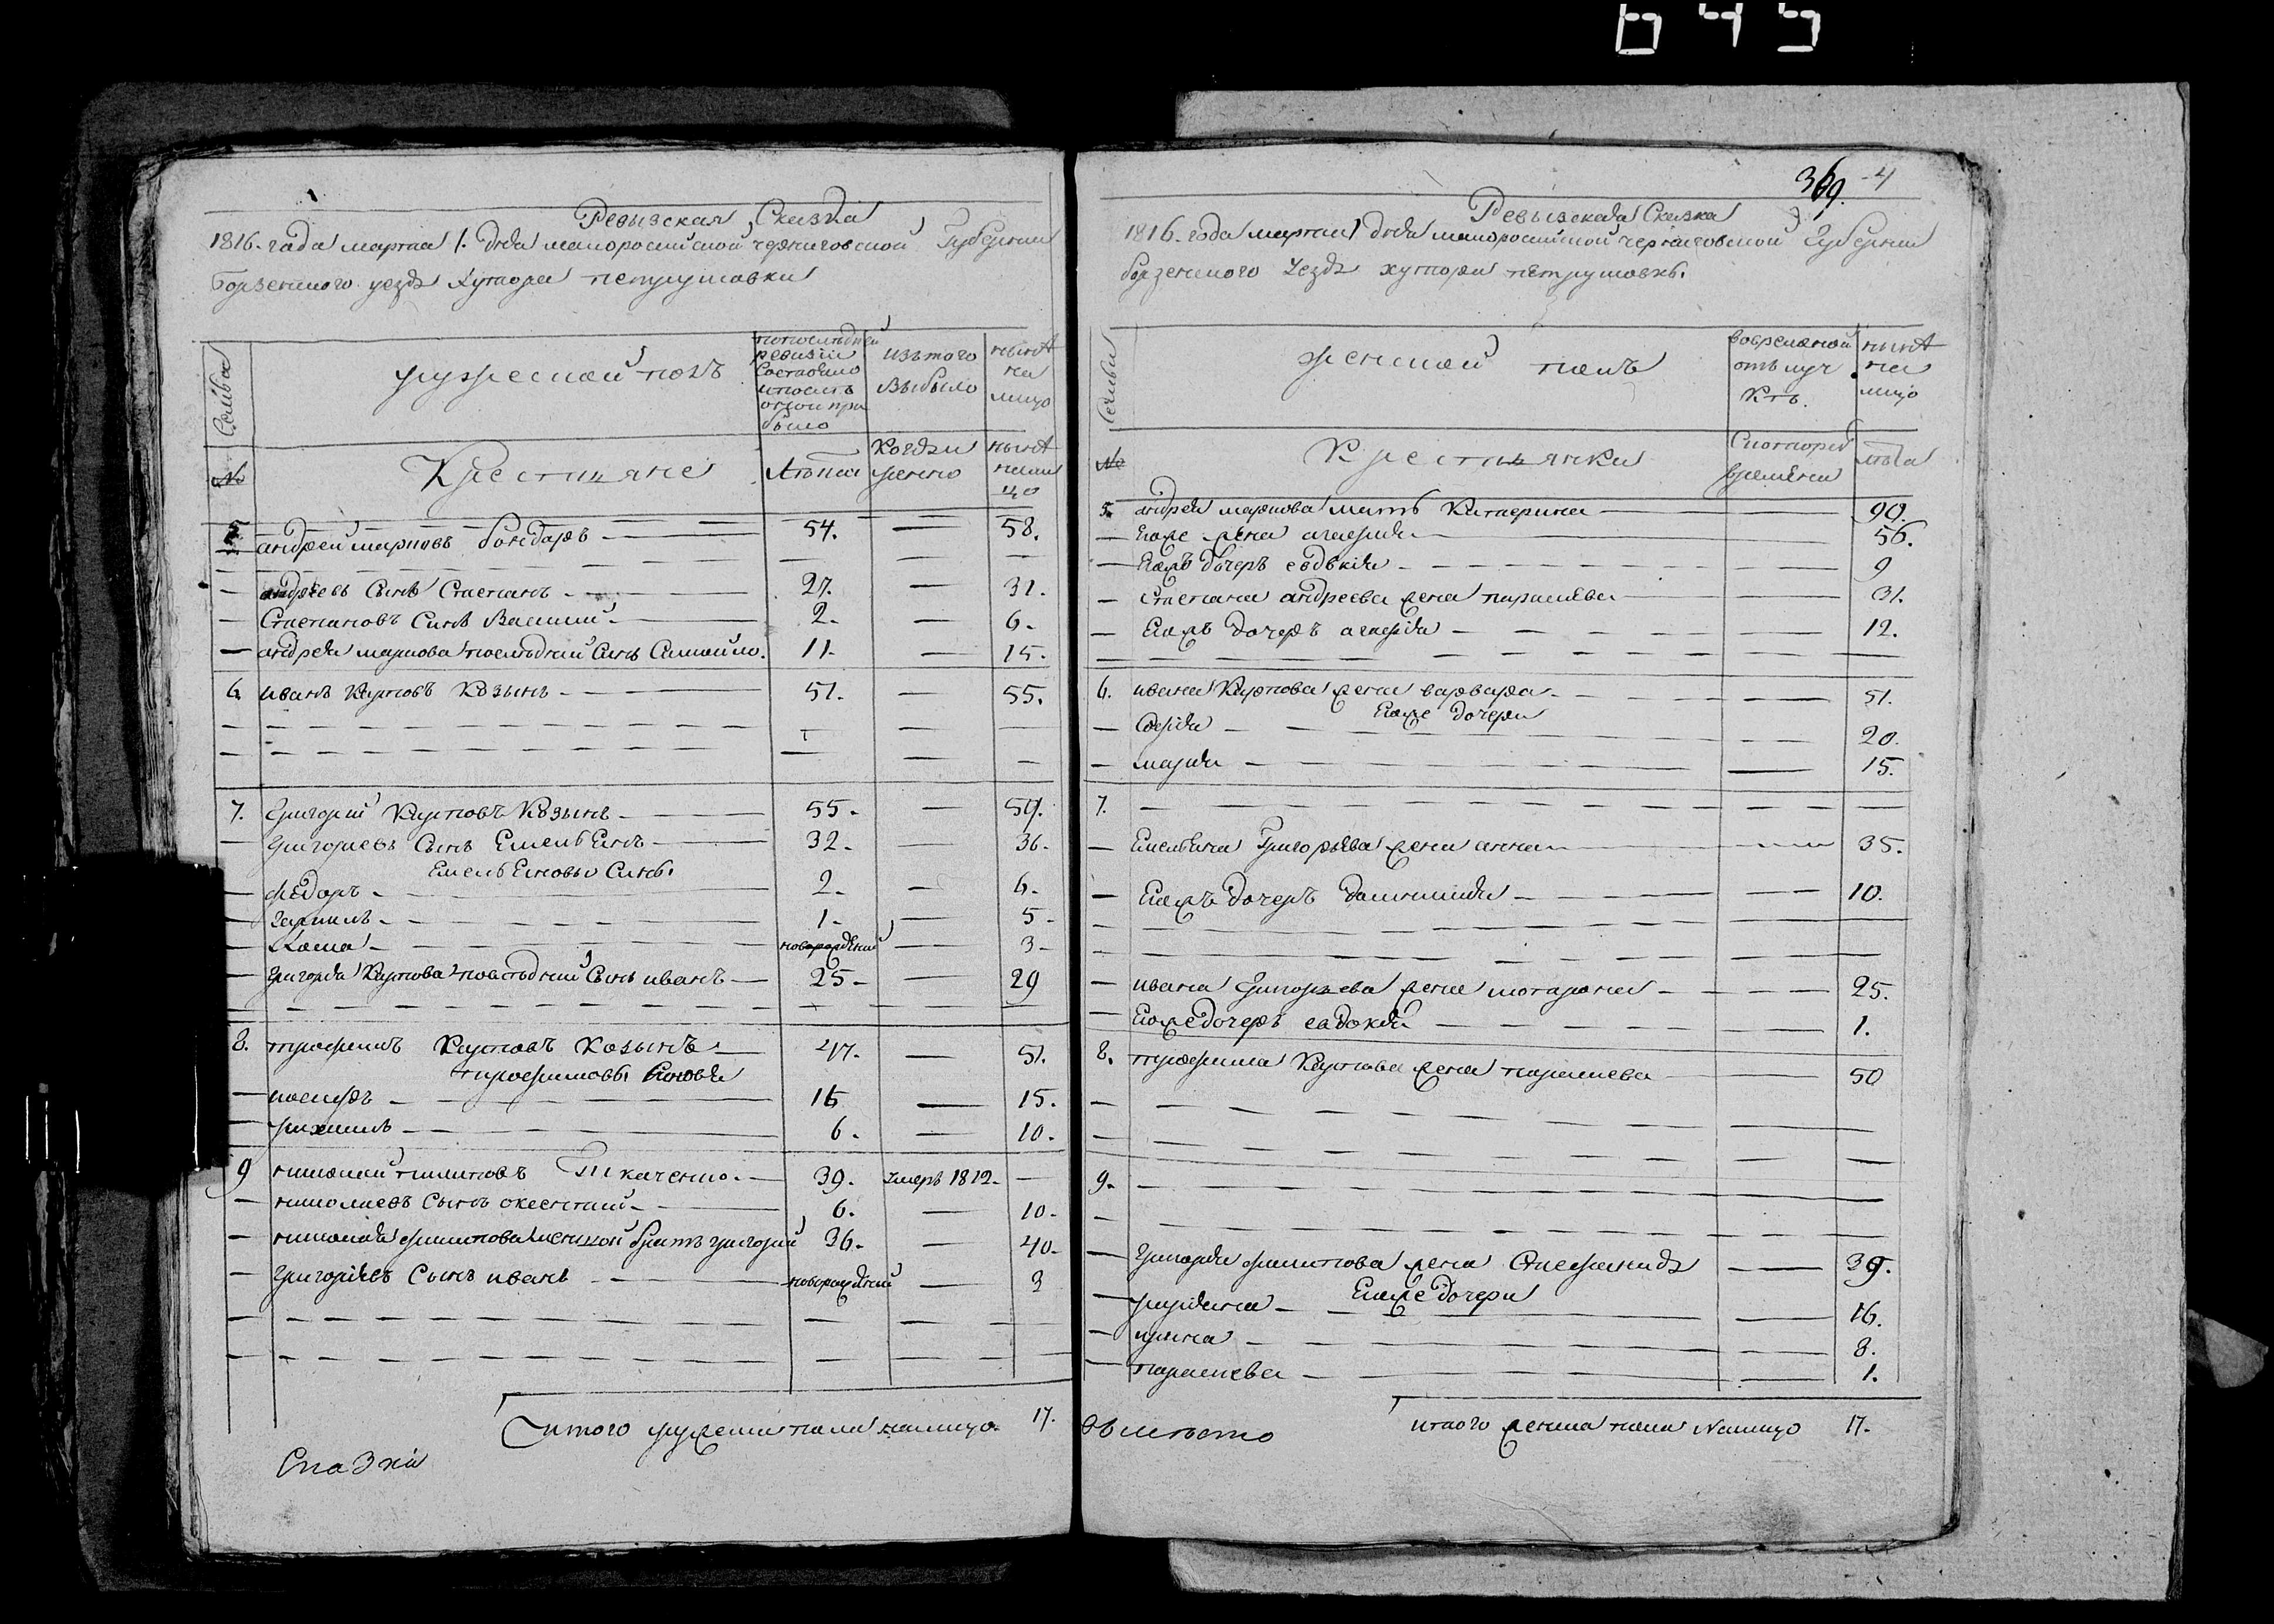 645
Ревызская Сказка
1816. года марта 1. дня малоросийской черниговской Губернии
Борзенского уезда Хутора петрушовки
Семьи
мужеской полъ
попоследней
ревизіи
состояло
и после
оной при
было
изътого
выбыло
ныне
на
лицо
№
Крестьяне
Лета
Когда
именно
ныне
нали
цо
5. андрей марковъ бондаръ 54. 58.
андреевъ Сынъ Степанъ 27. 31.
Степановъ Синъ Василий 2. 6.
андрея маркова последний Синъ Самойло. 11. 15.
6. иванъ Карповъ Козынъ 51. 55.
7. Григорий Карповъ Козынъ 55. 59.
Григориевъ Сынъ Емельенъ 32. 36.
Емельеновы Сины.
федоръ 2. 6.
гаврило 1. 5
новорожденый 3
Григория Карпова последний Сынъ иванъ 25 29
8. трофимъ Карповъ Козынъ 47. 51.
трофимовы Синовя
15.
6. 10.
9 николай пилиповъ Ткаченко. 39. умеръ 1812.
николаевъ Сынъ 6. 10
николая филипова братъ григорий 36. 40
Григориевъ Сынъ иванъ новорожденый 3
итого мужеска пола налицо. 17.
Сказки
369. 4
Ревызская Сказка
1816. года марта 1 дня малоросийской черниговской Губернии
борзенского уезда хутора петрушовкы.
Семьи
женской полъ
вовременой
отълуч
ке.
ныне
на
лицо
№
Крестьянки
Скоторого
времени
лета
5. андрея маркова мать Катерина 90.
Егоже жена агафия 56.
Егожъ дочеръ евдокия 9
Степана андреева жена параскева 31.
Егожъ дочеръ агафия 12.
6. ивана Карпова жена варвара 51.
Егоже дочери
софия 20.
мария 15.
7.
Емельена Григорьева жена анна 35.
Егожъ дочеръ 10.
ивана Григорьева жена 25.
Егоже дочеръ евдокия 1.
8. трофима Карпова жена параскева 50
9.
Григория филипова жена Степанида 39.
Егоже дочери
16.
ирина 8.
параскева 1.
итого женска пола Налицо 17.